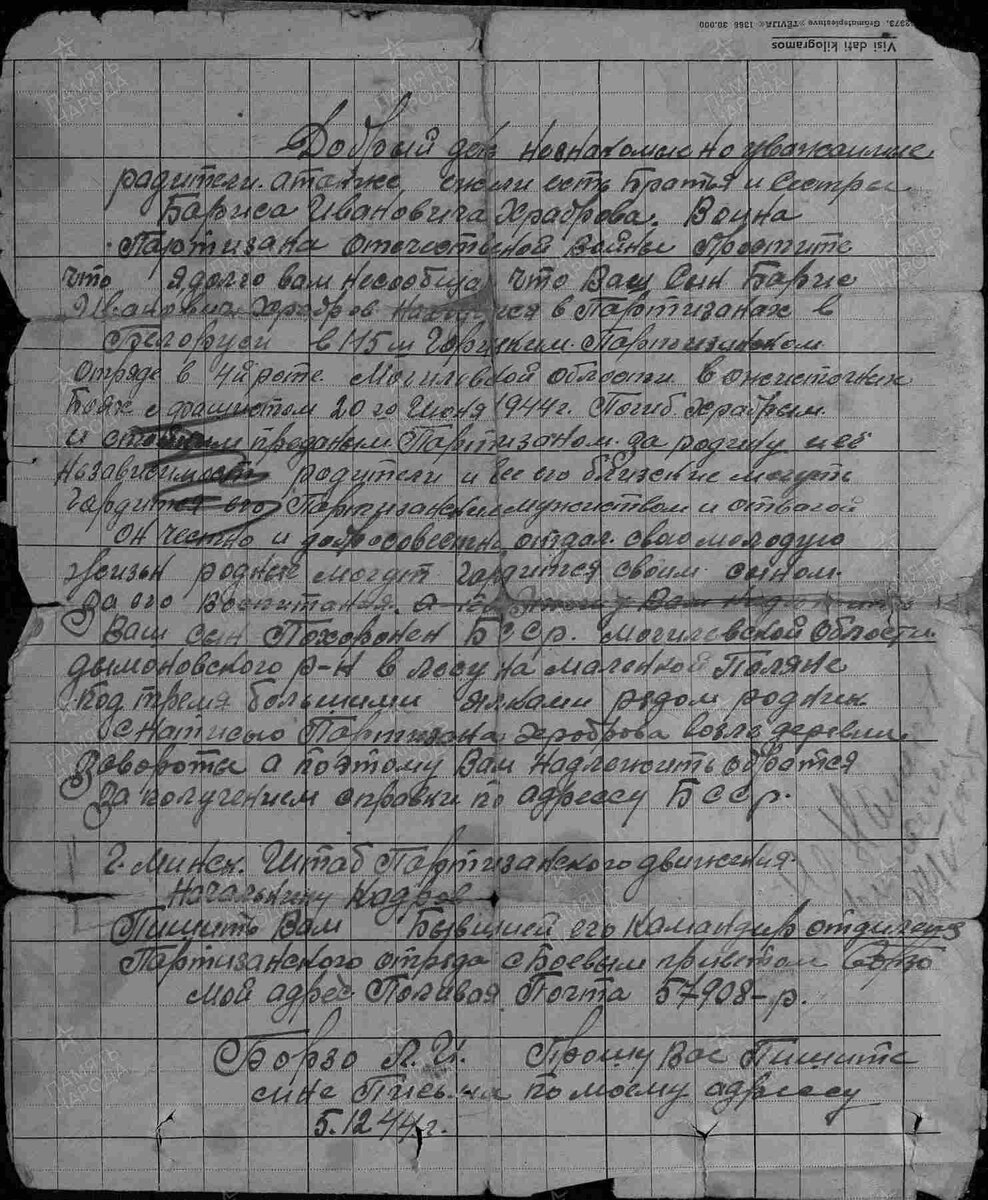 3373. Grāmatspiestuve »TEVIJA« 1366 30.000
Visi dati kilogramos
Добрый день незнакомые но уважаимые
радители. атакже если есть Братья и Сестры
Бариса Ивановича Храброва. Воина
Партизана Отечественой Войны Простите
что я долго вам несообщал что Ваш Сын Барис
Иванович Храбров находился в Партизанах в
Белоруси в 115м Партизанском
Отряде в 4й роте. Могилевской области в ожисточних
Боях с фашистом 20го Июня 1944г. Погиб Храбрым
и стойким преданым Партизаном за родину и её
независимость родители и все его близские могуть
гордится его Партизанским мужиством и отвагой
он честно и добросовестно отдал свою молодую
жизьн родные могут гордится своим сыном
За его воспитания.
Ваш сын Похоронен БССР. Могилевской Области
дымоновского р-н в лесу на маленкой Поляне
под тремя большими ёлками рядом родник
с натписью Партизана Храброва возле деревни
Завороты а поэтому Вам надложить обратся
За получением справки по адрессу БССР.
г. Минск. Штаб Партизанского движения
Начальнику Кадров
Пишить Вам Бывший его Камандир отделения
Партизанского отряда с Боевым приветом Борзо
мой адрес Поливая Почта 57908-р.
Борзо Л. И. Прошу Вас Пишите
мне Письма по моему адрессу
5.12 44 г.
ПАМЯТЬ НАРОДА